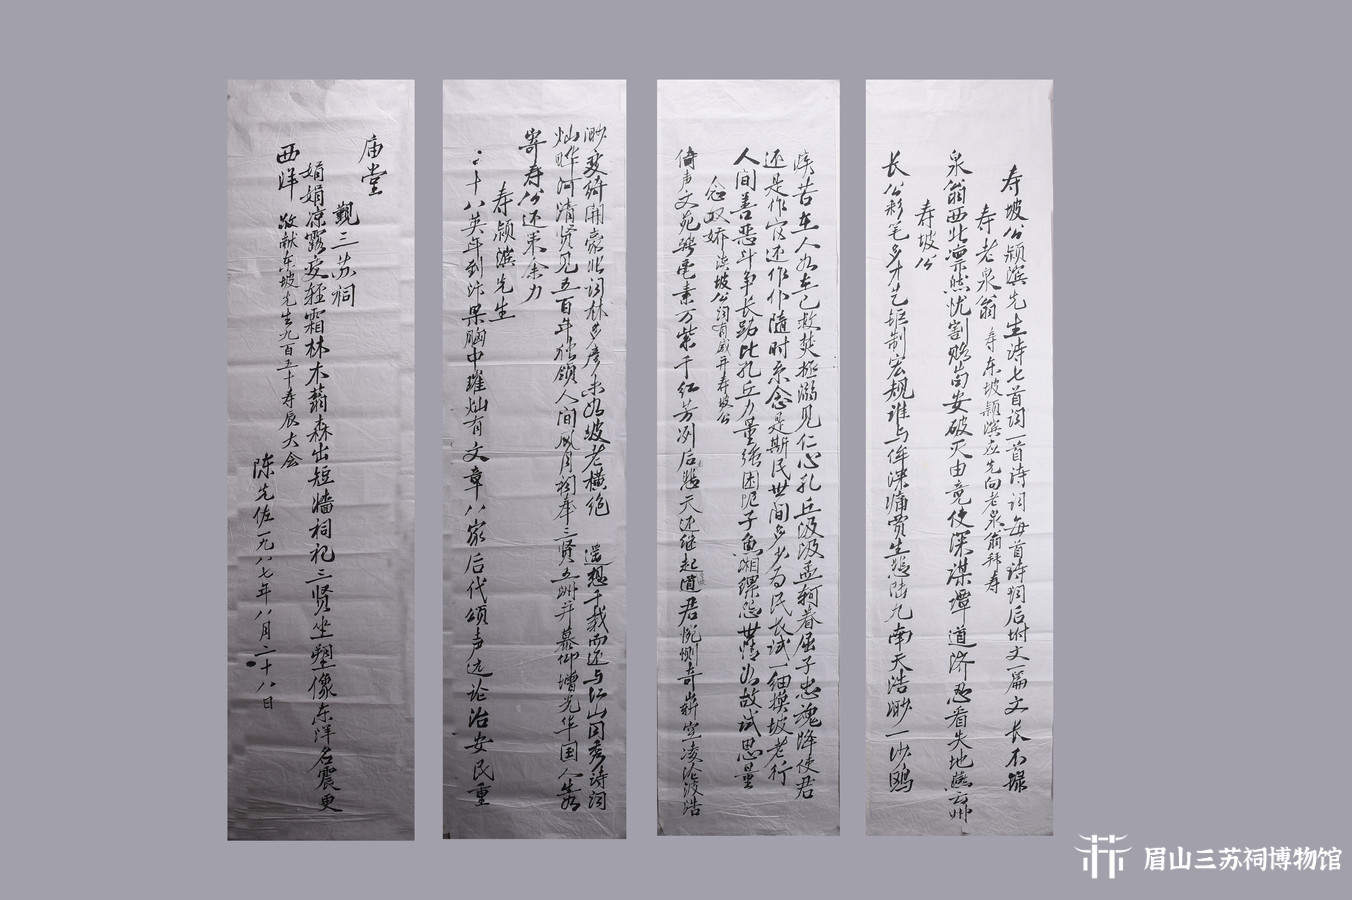 寿坡公颍滨先生诗七首词二首诗词每首诗词后附文一篇文长不录
寿老泉翁 寿东坡颍滨应先向老泉翁拜寿
泉翁西北凛然忧割赂苟安破灭由竟使深谋墰道济忍看失地燕云州
寿坡公
长公彩笔多才艺钜制宏规谁与侔深痛贾生愁陆九南天浩渺一沙鸥
疾苦在人如在己救焚拯溺见仁心孔丘汲汲孟轲眷屈子忠魂降使君
还是作官还作仆随时系念是斯民世间多少为民长试一细摸坡老行
人间善恶斗争长跖比孔丘力量强困厄子鱼湘缧怨世情如故试思量
念奴娇 读坡公词有感并寿坡公
倚声文苑 毫素万紫千红芳冽后愁天还继起道君 奇 空凌沧波浩
渺变绮开豪此词林多彦未如坡老横绝 遥想千载而还与江山同秀诗词
灿晔河清贤见五百年独领人间风月祠奉三贤五洲并慕仰增光华国人
寄寿公还策余力
寿颍滨先生
二十八英年到汴梁胸中璀灿有文章八家后代颂声远论治安民重
庙堂
觐三苏祠
娟娟凉露夜轻霜林木蓊森出短墙祠祀三贤坐塑像东洋名震更
西洋 敬献东坡先生九百五十寿辰大会
陈先佐一九八七年八月二十八日
眉山三苏祠博物馆